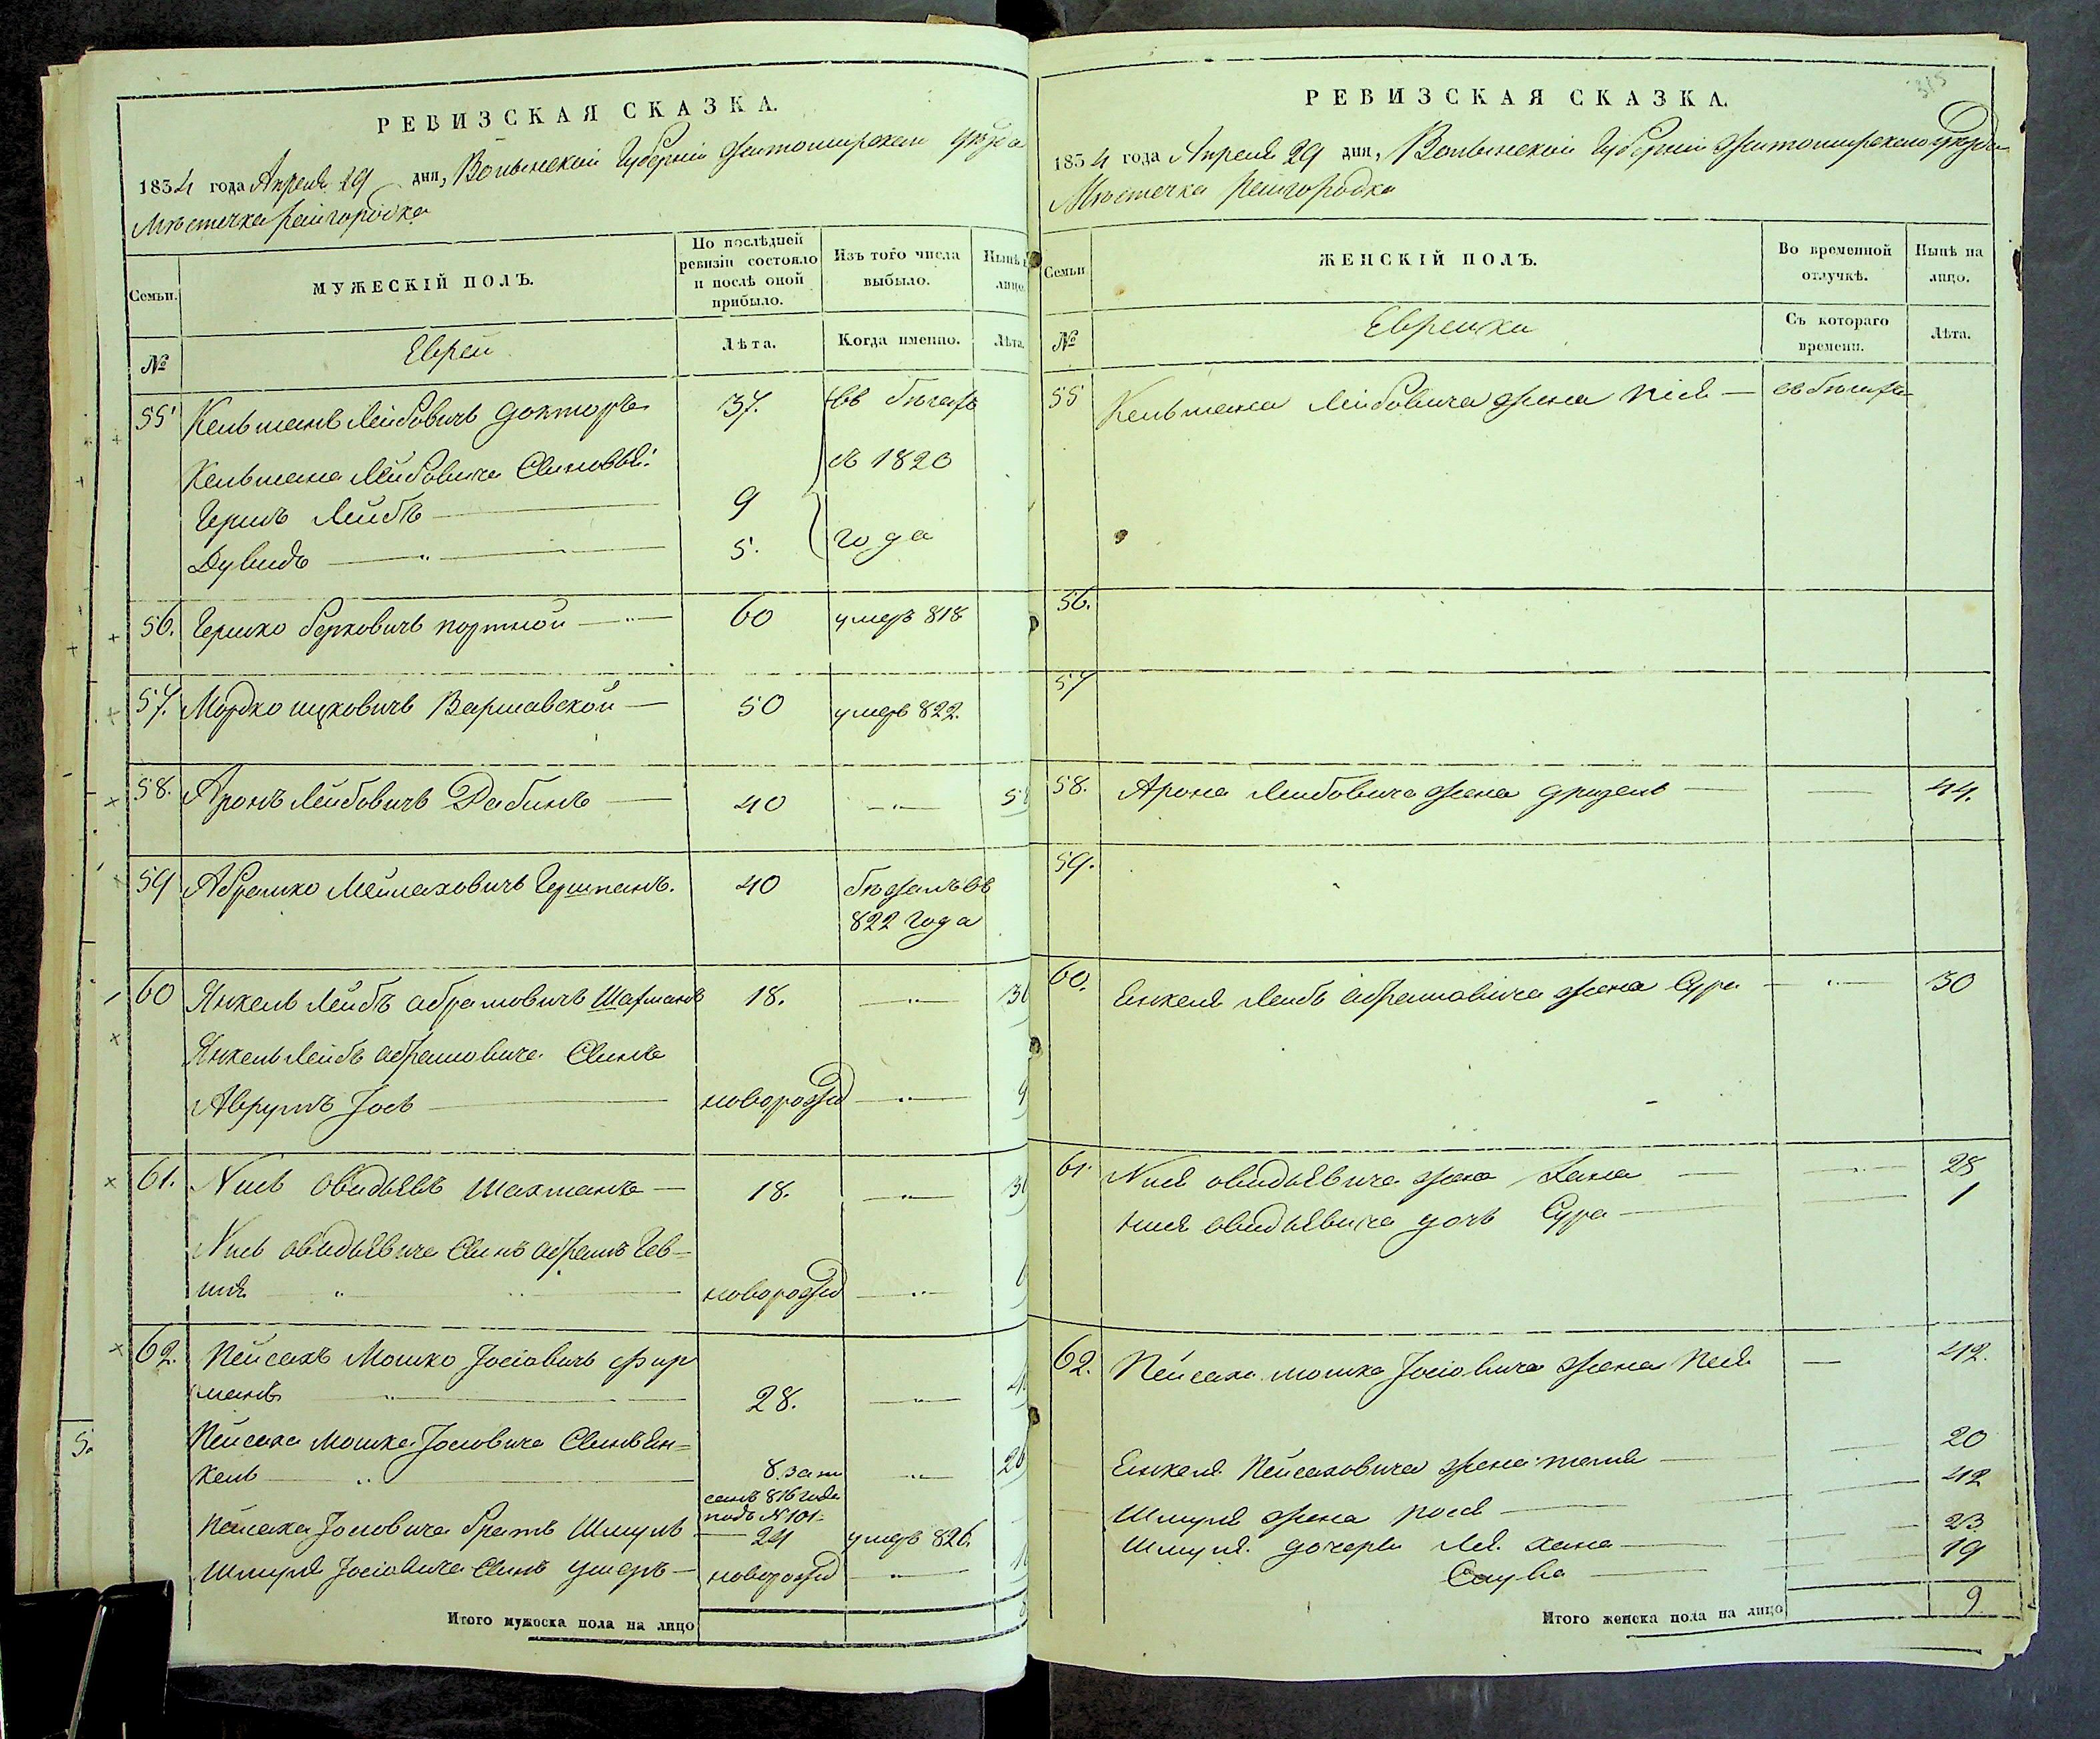 РЕВИЗСКАЯ СКАЗКА.
1834 года Апреля 29 дня, Волынской Губерніи Житомирскаго уѣзда
Мѣстечка Райгородка
Семьи.
МУЖЕСКІЙ ПОЛЪ.
По послѣдней ревизіи состояло и послѣ оной прибыло.
Изъ того числа выбыло.
Нынѣ
лицо.
№
Евреи
Лѣта.
Когда именно.
Лѣта.
55 Кельманъ Лейбовичъ докторъ 37. въ бѣгахъ
Кельмана Лейбовича Сыновья: съ 1820
Гершъ Лейбъ — 9
Дувидъ — " — 5. года
56. Гершко Берковичъ портной — " — 60 умеръ 818
57. Мордко ицковичъ Варшавской — 50 умеръ 822.
58. Аронъ Лейбовичъ Рабинъ — 40 — " — 5
59 Абрамко Мейлаховичъ Гершманъ. 40 бѣжалъ въ
822 года
60 Янкель Лейбъ абрамовичъ Шахманъ 18. — " —
Янкель Лейбъ абрамовича Сынъ
Аврумъ Іось — новорожд — " —
61. Нисъ овидьявъ шахманъ — 18. — " —
Нисъ овидьявича Сынъ абрамъ Гев=
шія — " — новорожд — " —
62. Пейсахъ Мошко Іосіовичъ фур
манъ — " — 28. — " —
Пейсаха Мошка Іосіовича Сынъ Ян=
кель — " — 8. — " — 20
санъ 816 года
подъ №101
Пейсаха Іосіовича братъ Шмуль — 24 умеръ 826.
Шмуля Іосіовича Сынъ ушеръ — новорожд — " —
Итого мужеска пола на лицо
РЕВИЗСКАЯ СКАЗКА.
315
1834 года Апреля 29 дня, Волынской Губерніи Житомирскаго уѣзда
Мѣстечка Райгородка
Семьи
ЖЕНСКІЙ ПОЛЪ.
Во временной отлучкѣ.
Нынѣ на лицо.
№
Еврейки
Съ котораго времени.
Лѣта.
55 Кельмана Лейбовича жена — въ бѣгахъ
56.
57
58. Арона Лейбовича жена фридель — — 44.
59.
60. Енкеля Лейбъ абрамовича жена Сура — " — 30
61. Нися овидьявича жена Хана — — " — 28
Нися овидьявича дочь Сура — — 1
62. Пейсаха мошка Іосіовича жена Песя — 42.
Енкеля Пейсаховича жена — 20
Шмуля жена — 42
Шмуля дочери Лея хана — 23
— 19
Итого женска пола на лицо 9